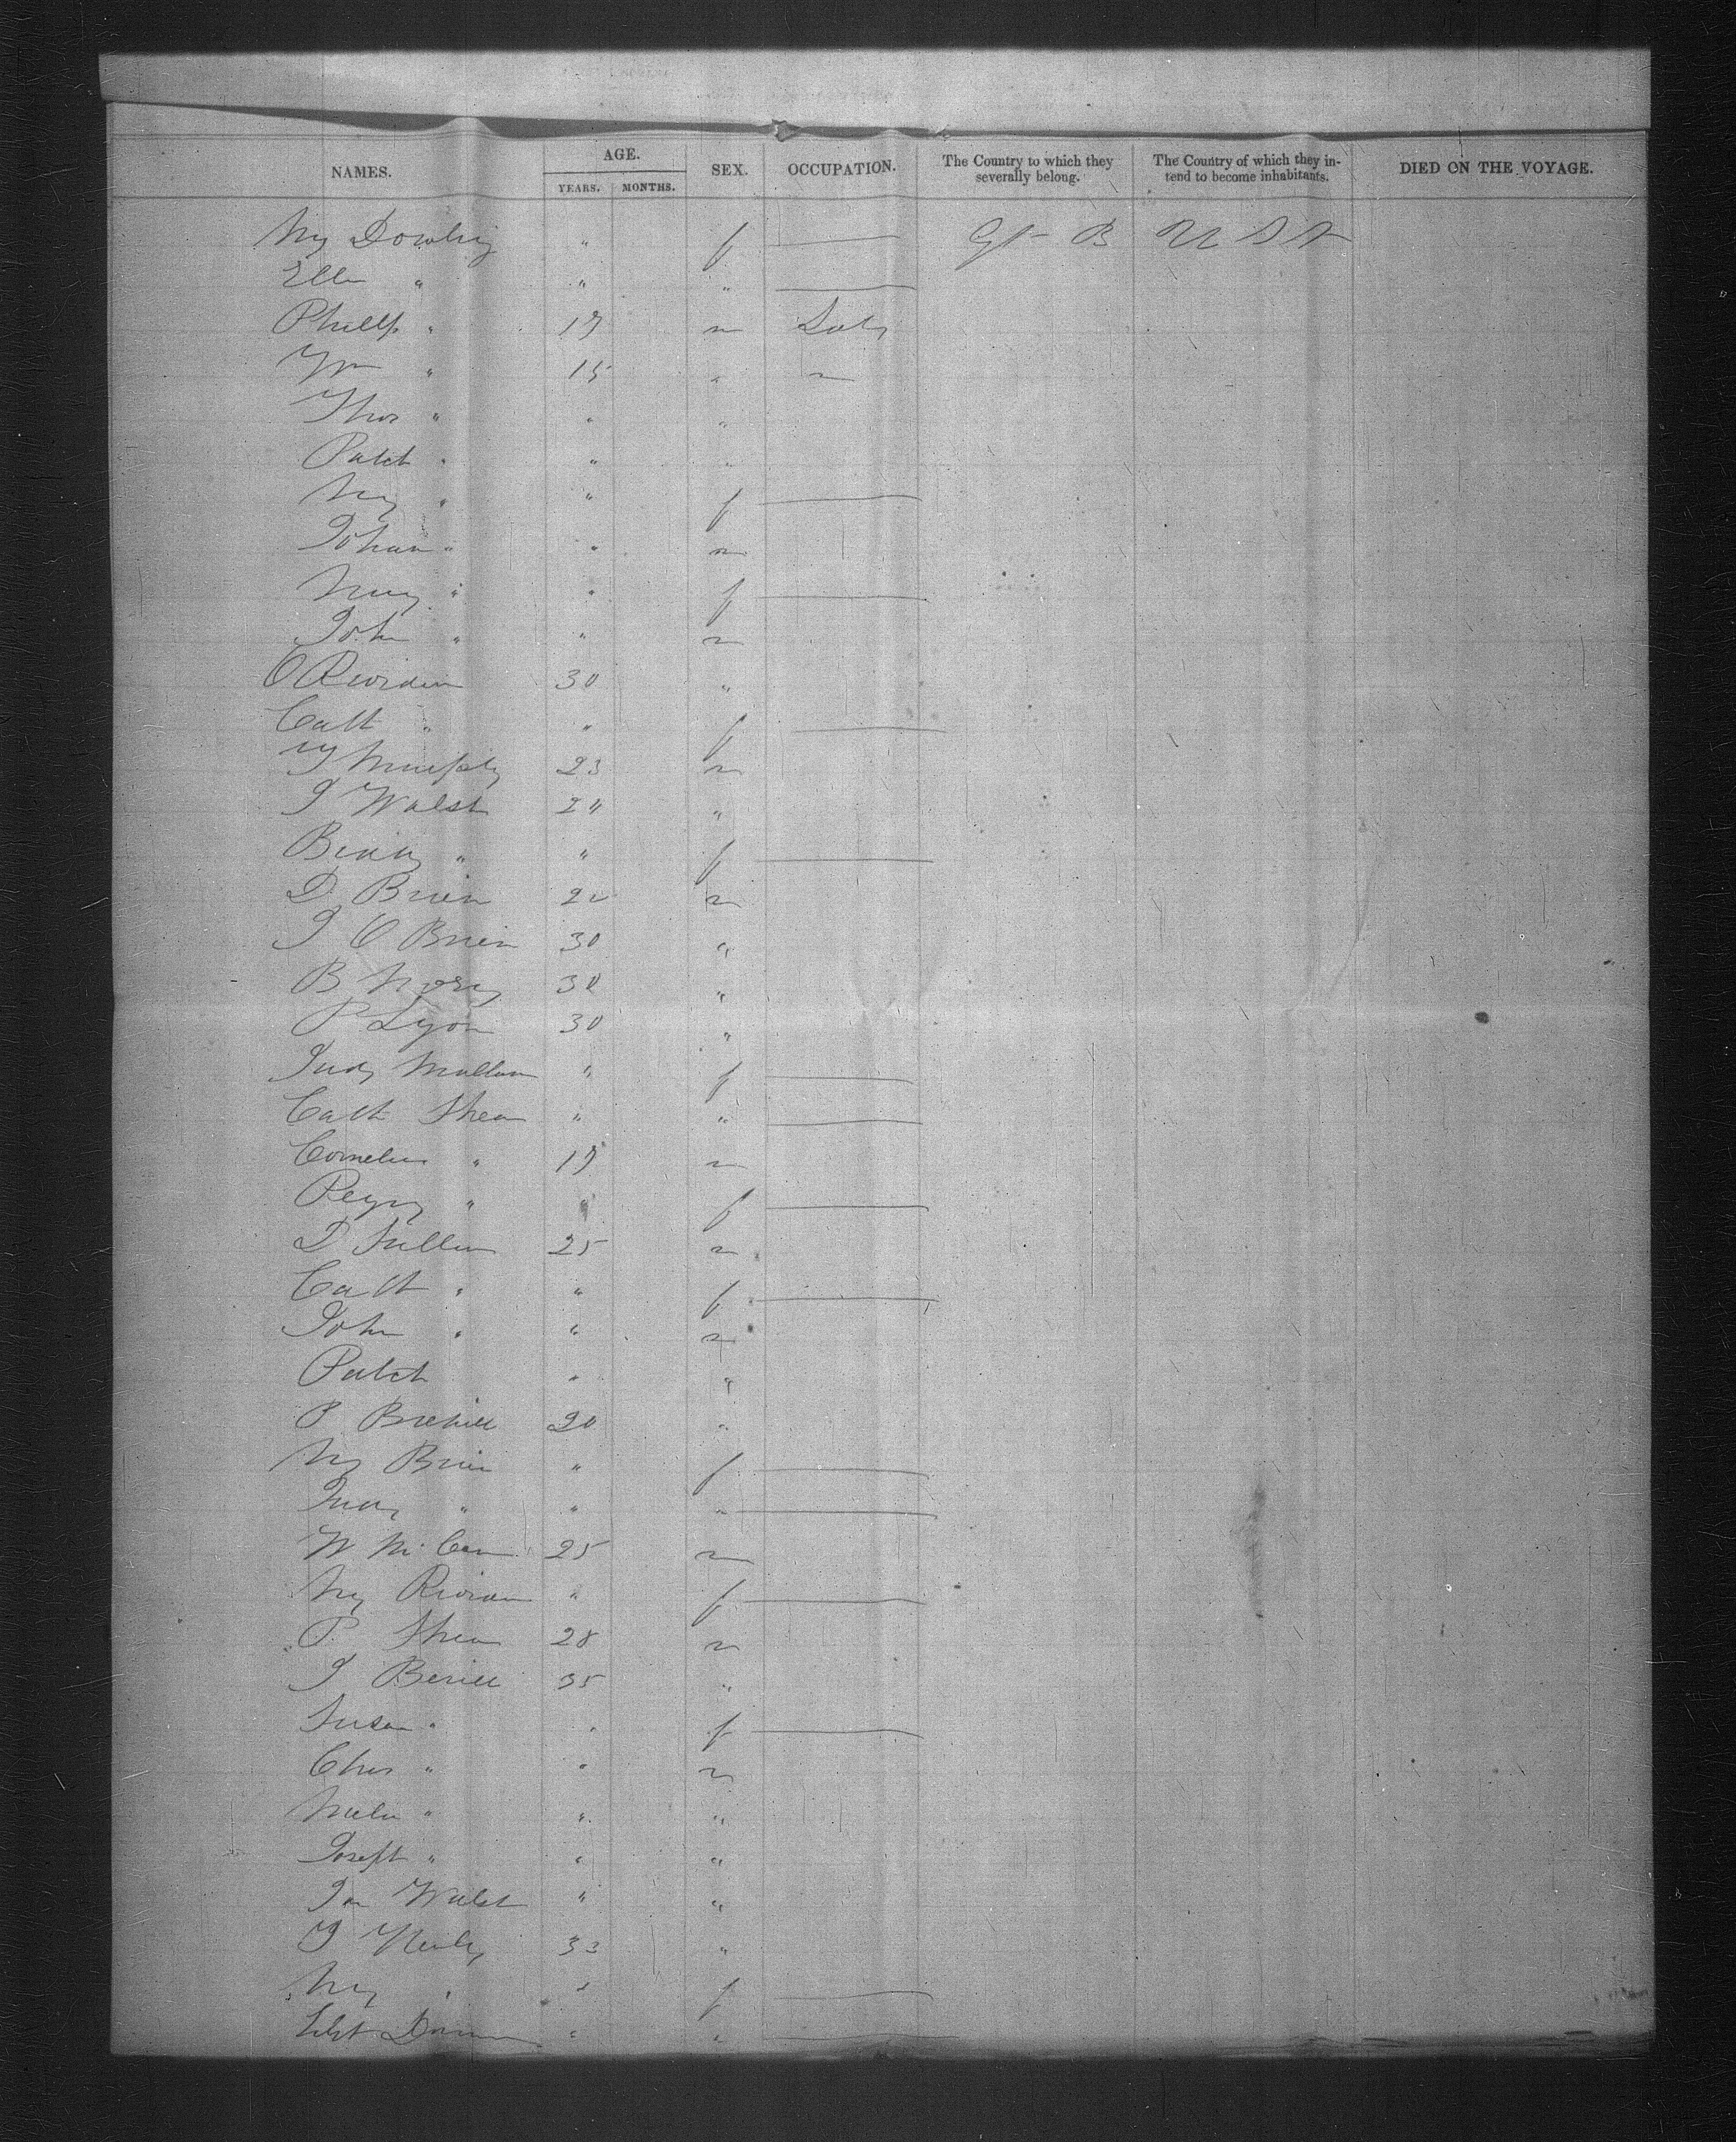 NAMES. AGE. SEX. OCCUPATION. The Country to which they severally belong. The Country of which they intend to become inhabitants. DIED ON THE VOYAGE.
YEARS. MONTHS.
My Dowling " f — Gt B U S A
Ellen " " " —
Phillip " 17 m Lab
Wm " 15 " "
Thos " " "
Patck " " "
My " " f —
Johan " " m
Mary " " f —
John " " m
O Riordan 30 "
Cath " " f —
Murphy 23 m
J Walsh 24 "
Biddy " " f —
D Brien 20 m
J O Brien 30 "
B 30 "
P Lyon 30 "
Judy " f —
Cath Shea " " —
Cornelius " 17 m
Peggy " " f —
D Sullivan 25 m
Cath " " f —
John " " m
Patck " "
P 20 "
My Brien " f —
" " " —
W 25 m
My Riordan " f —
P. Shea 28 m
J 35 "
Susan " " f —
Chas " " m
" " "
Joseph " " "
Jas Walsh " "
33 "
My " " f —
" " —